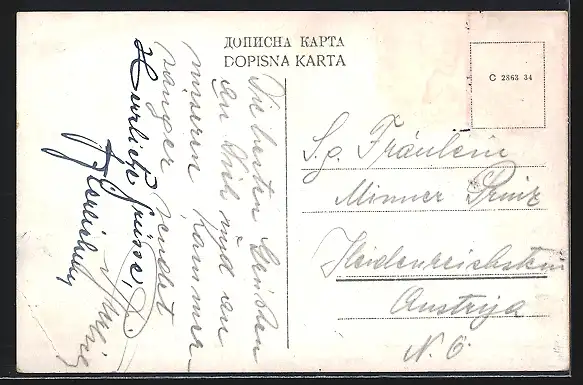 ДОПИСНА КАРТА
DOPISNA KARTA
C 2863 34
Die besten
an Sie und an
unseren Kammer-
sänger sendet
Herzliche Grüsse,
S. g. Fräulein
Minner Prinz
Heidenreichstein
Austrija
N. Ö